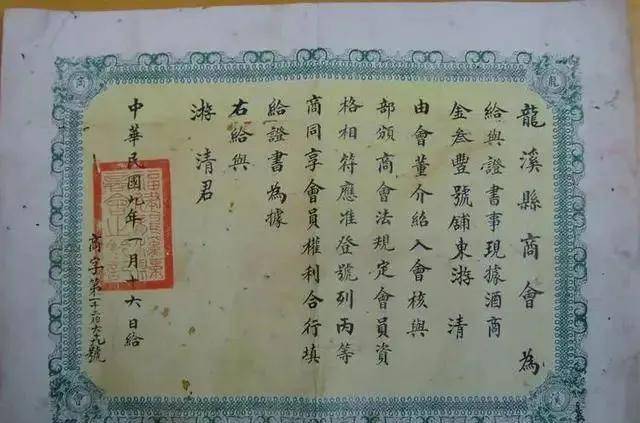 龍溪縣商會 為
給與證書事現據酒商
金叁豐號舖東游 清
由會董介紹入會核與
部頒商會法規定會員資
格相符應准登號列丙等
商同享會員權利合行填
給證書為據
右給與
游 清君
中華民國九年一月十六日給
商字第一千二百六十九號
龍
商
會